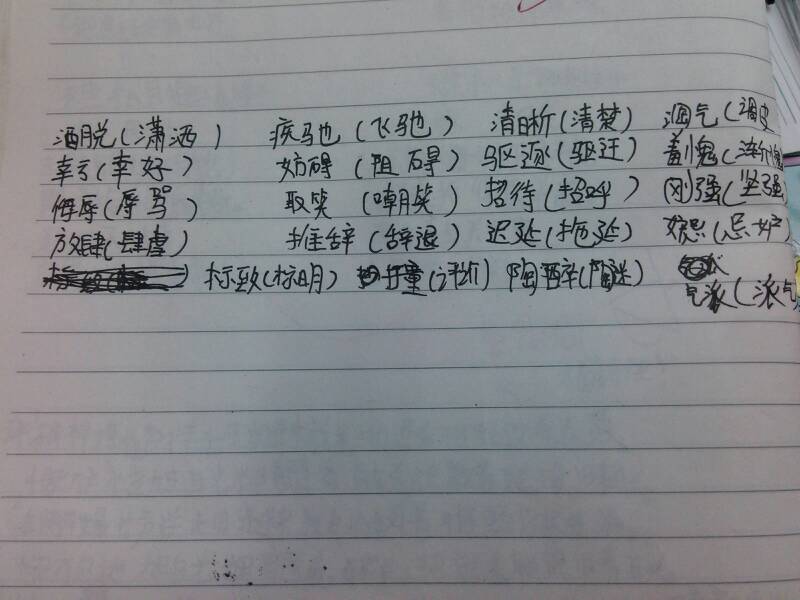 洒脱(潇洒) 疾驰(飞驰) 清晰(清楚) 淘气(调皮
幸亏(幸好) 妨碍(阻碍) 驱逐(驱赶) 羞愧(惭愧
侮辱(辱骂) 取笑(嘲笑) 招待(招呼) 刚强(坚强
放肆(肆虐) 推辞(辞退) 迟延(拖延) 妒忌(忌妒)
标致(标明) 陶醉(陶迷)
气派(派气